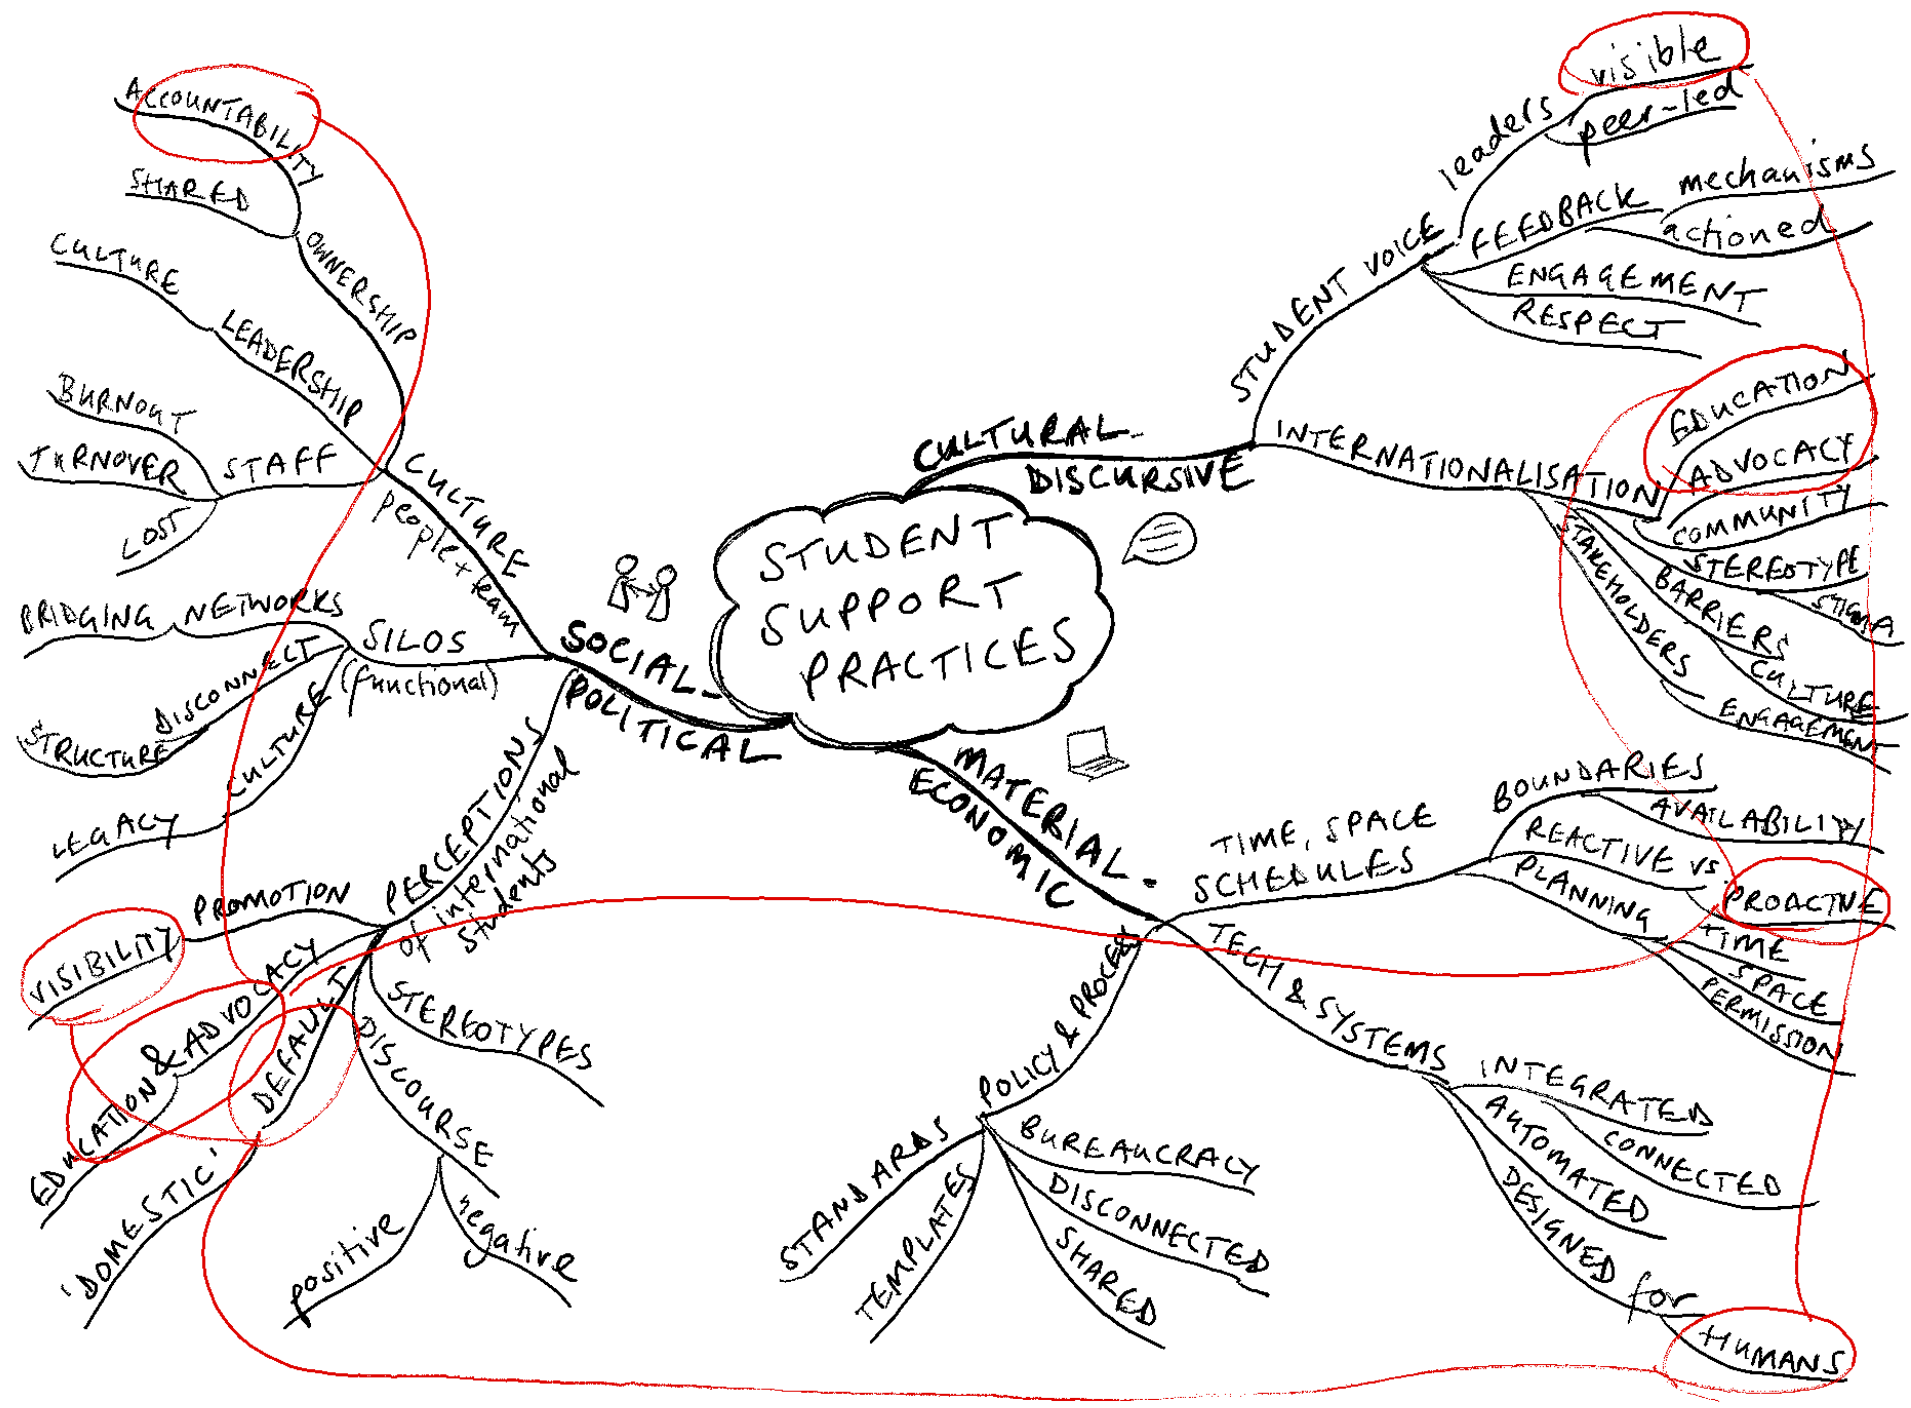 STUDENT
SUPPORT
PRACTICES
CULTURAL-
DISCURSIVE
STUDENT VOICE
leaders
visible
peer-led
FEEDBACK
mechanisms
actioned
ENGAGEMENT
RESPECT
INTERNATIONALISATION
EDUCATION
ADVOCACY
COMMUNITY
STEREOTYPE
STIGMA
BARRIERS
CULTURE
STAKEHOLDERS
ENGAGEMENT
MATERIAL-
ECONOMIC
TIME, SPACE
SCHEDULES
BOUNDARIES
AVAILABILITY
REACTIVE vs.
PROACTIVE
PLANNING
TIME
SPACE
PERMISSION
TECH & SYSTEMS
INTEGRATED
CONNECTED
AUTOMATED
DESIGNED for
HUMANS
POLICY & PROCESS
BUREAUCRACY
DISCONNECTED
SHARED
TEMPLATES
STANDARDS
SOCIAL-
POLITICAL
CULTURE
people + team
OWNERSHIP
ACCOUNTABILITY
SHARED
LEADERSHIP
CULTURE
STAFF
BURNOUT
TURNOVER
LOST
SILOS
(functional)
NETWORKS
BRIDGING
DISCONNECT
STRUCTURE
CULTURE
LEGACY
PERCEPTIONS
of international
students
PROMOTION
VISIBILITY
EDUCATION & ADVOCACY
DEFAULT
'DOMESTIC'
DISCOURSE
positive
negative
STEREOTYPES